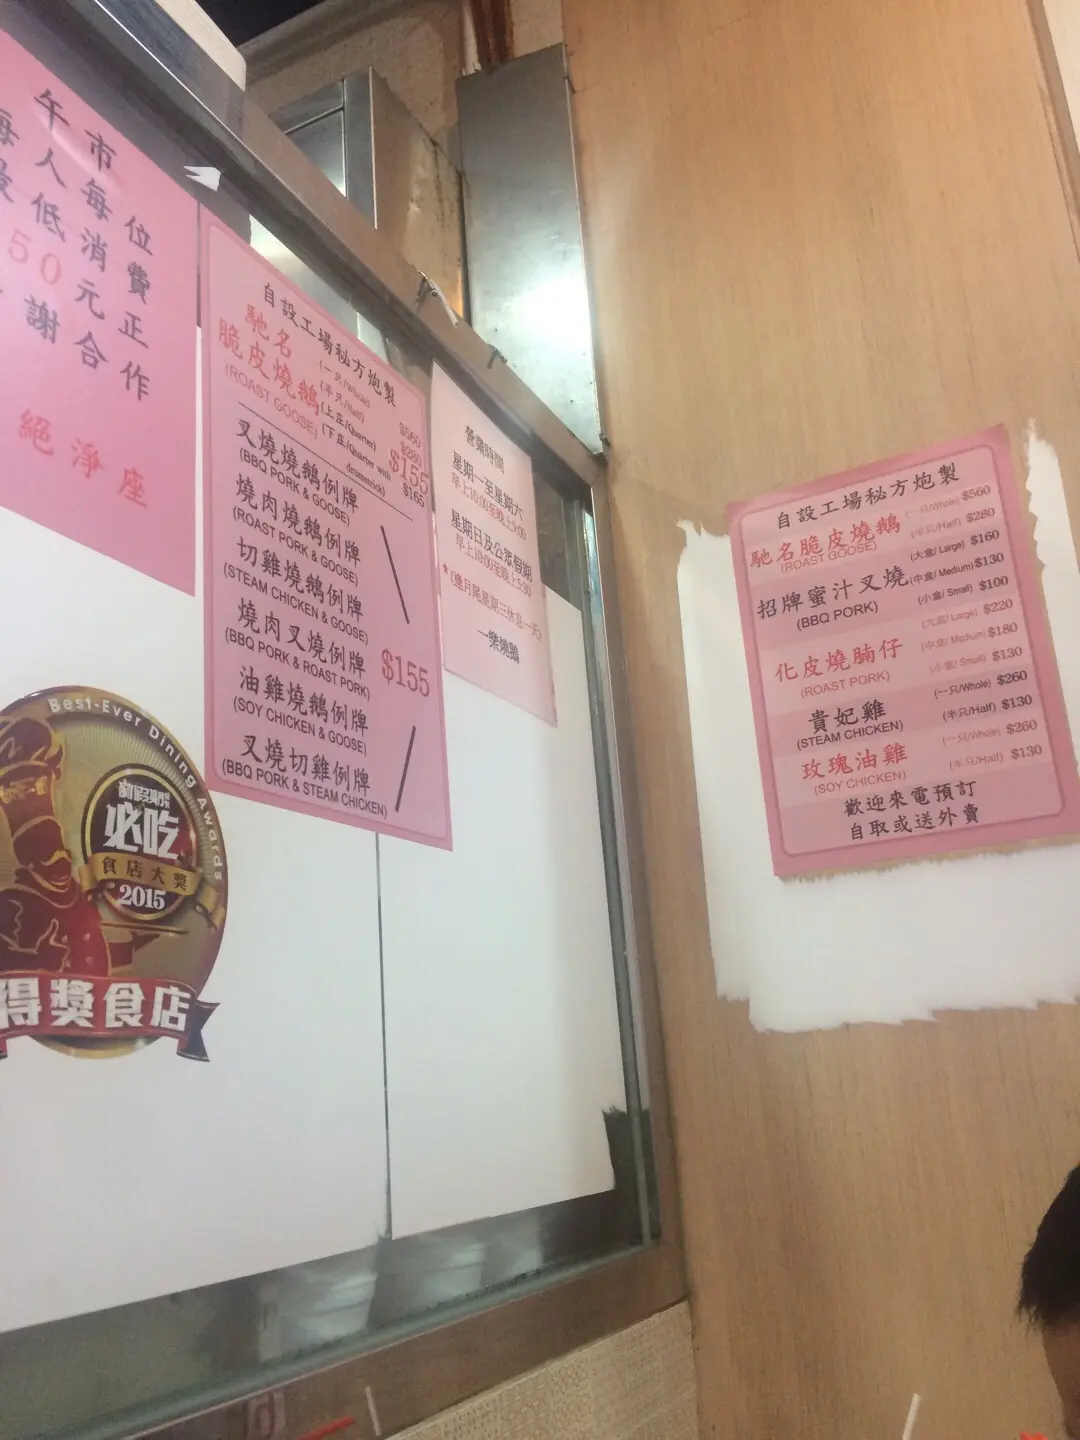 午市
每人每位
最低消費
50元正
謝合作
絕淨座
自設工場秘方炮製
馳名
脆皮燒鵝
(ROAST GOOSE)
(一只/Whole) $560
(半只/Half) $280
(上庄/Quarter) $155
(下庄/Quarter with drumstrick) $165
叉燒燒鵝例牌
(BBQ PORK & GOOSE)
燒肉燒鵝例牌
(ROAST PORK & GOOSE)
切雞燒鵝例牌
(STEAM CHICKEN & GOOSE)
燒肉叉燒例牌
(BBQ PORK & ROAST PORK)
油雞燒鵝例牌
(SOY CHICKEN & GOOSE)
叉燒切雞例牌
(BBQ PORK & STEAM CHICKEN)
$155
營業時間
星期一至星期六
早上10:00至晚上9:00
星期日及公眾假期
早上10:00至晚上5:30
*(逢月尾星期三休息一天)
一樂燒鵝
Best-Ever Dining Awards
新假期
必吃
食店大獎
2015
得獎食店
自設工場秘方炮製
馳名脆皮燒鵝 (一只/Whole) $560
(ROAST GOOSE) (半只/Half) $280
招牌蜜汁叉燒 (大盒/Large) $160
(BBQ PORK) (中盒/Medium) $130
(小盒/Small) $100
化皮燒腩仔 (大盒/Large) $220
(ROAST PORK) (中盒/Medium) $180
(小盒/Small) $130
貴妃雞 (一只/Whole) $260
(STEAM CHICKEN) (半只/Half) $130
玫瑰油雞 (一只/Whole) $260
(SOY CHICKEN) (半只/Half) $130
歡迎來電預訂
自取或送外賣